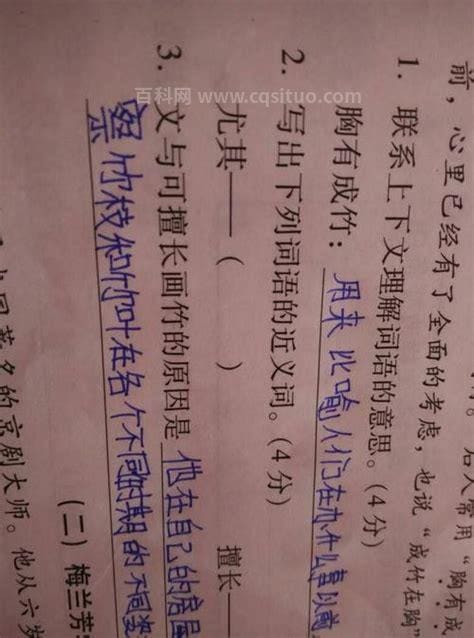 后人常用“胸有成
前，心里已经有了全面的考虑，也说“成竹在胸
1. 联系上下文理解词语的意思。(4分)
胸有成竹：用来比喻人们在办什么事以前
2. 写出下列词语的近义词。(4分)
尤其——（　　） 擅长——
3. 文与可擅长画竹的原因是 他在自己的房屋
察竹枝和竹叶在各个不同时期的不同姿
(二) 梅兰芳
国著名的京剧大师。他从六岁
百科网 www.cqsituo.com